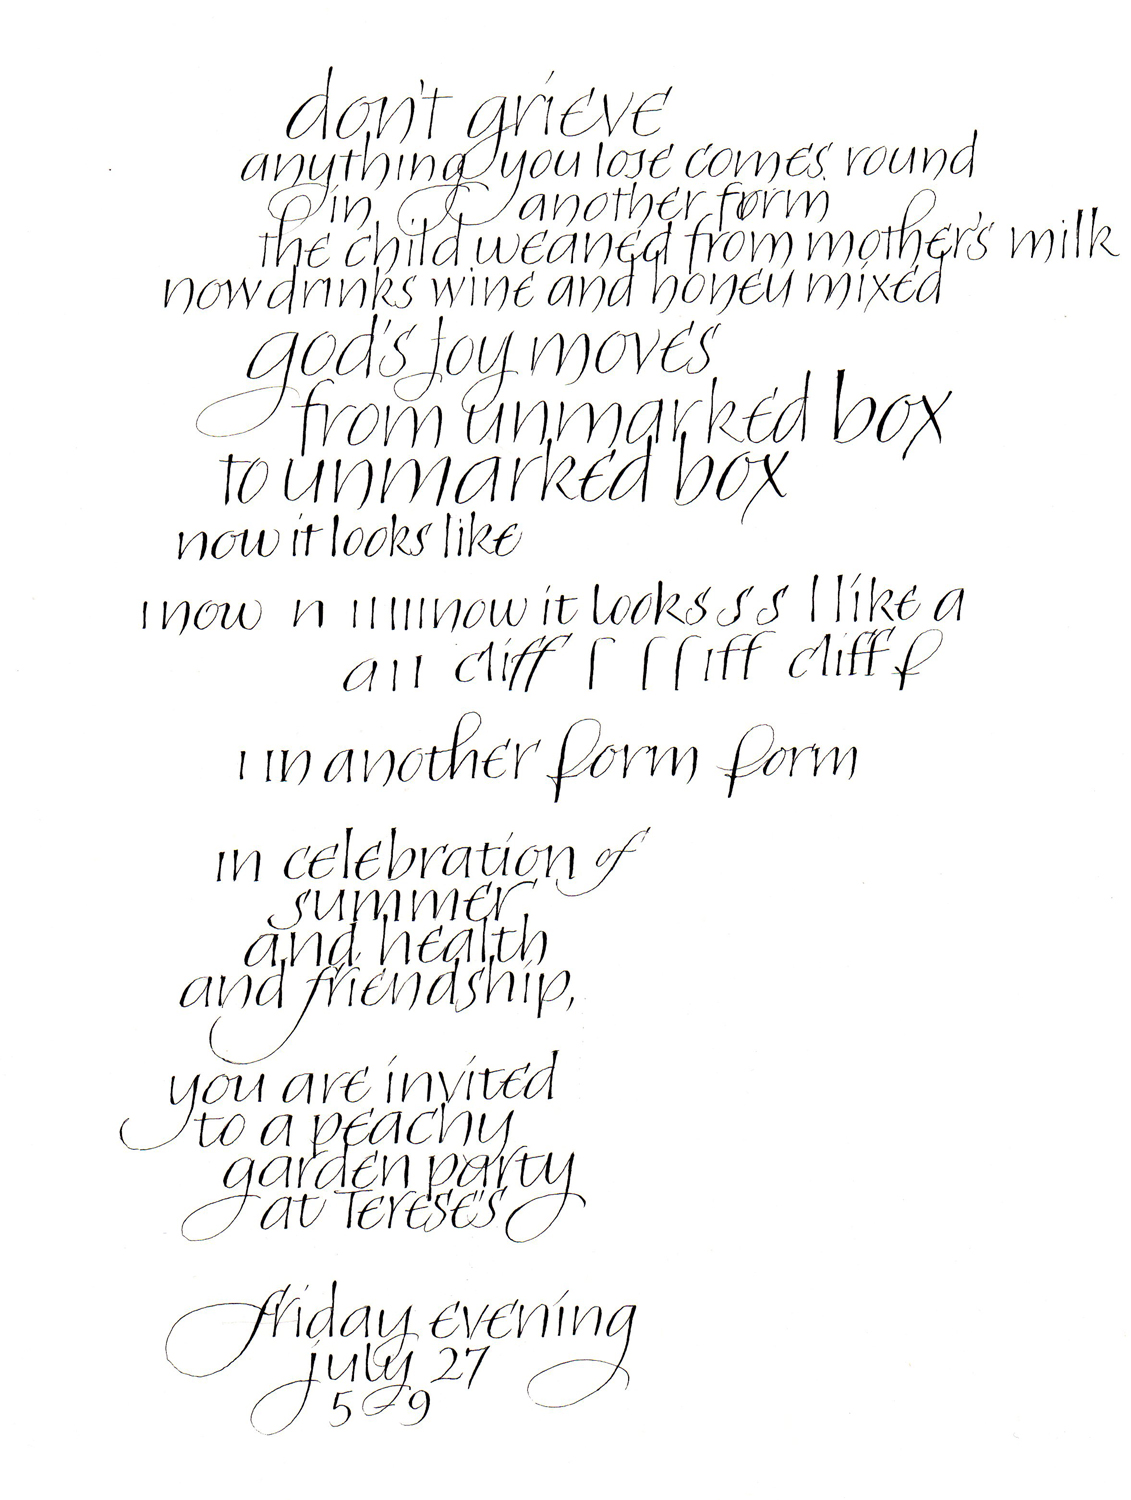 don't grieve
anything you lose comes round
in another form
the child weaned from mother's milk
now drinks wine and honey mixed
god's joy moves
from unmarked box
to unmarked box
now it looks like
ı now n ı ı ı ı ı now it looks s s l like a
a l l cliff f f f iff cliff f
ı in another form form
in celebration of
summer
and health
and friendship,
you are invited
to a peachy
garden party
at Terese's
friday evening
july 27
5-9